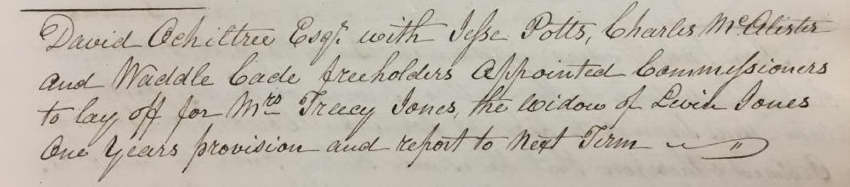 David Ochiltree Esqr. with Jesse Potts, Charles McAlister
and Waddle Cade freeholders Appointed Commissioners
to lay off for Mrs Treecy Jones, the widow of Levin Jones
One Years provision and report to Next Term